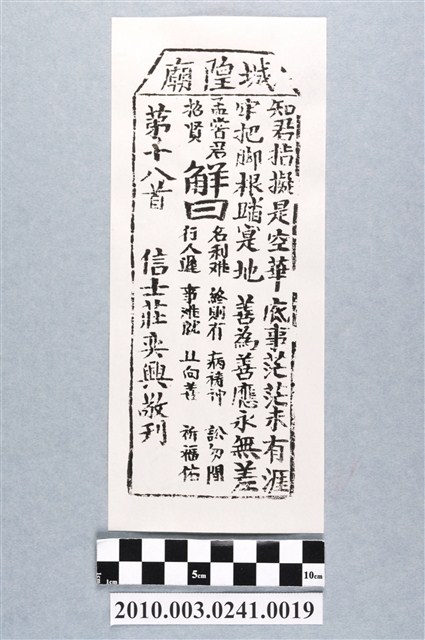 城隍廟
知君指擬是空華 底事茫茫未有涯
牢把脚根踏寔地 善為善應永無差
孟嘗君
招賢
觧曰
名利难 終則有 病禱神 訟勿聞
行人遲 事难就 且向善 祈福佑
苐十八首 信士莊奕興敬刊
1cm 5cm 10cm
2010.003.0241.0019